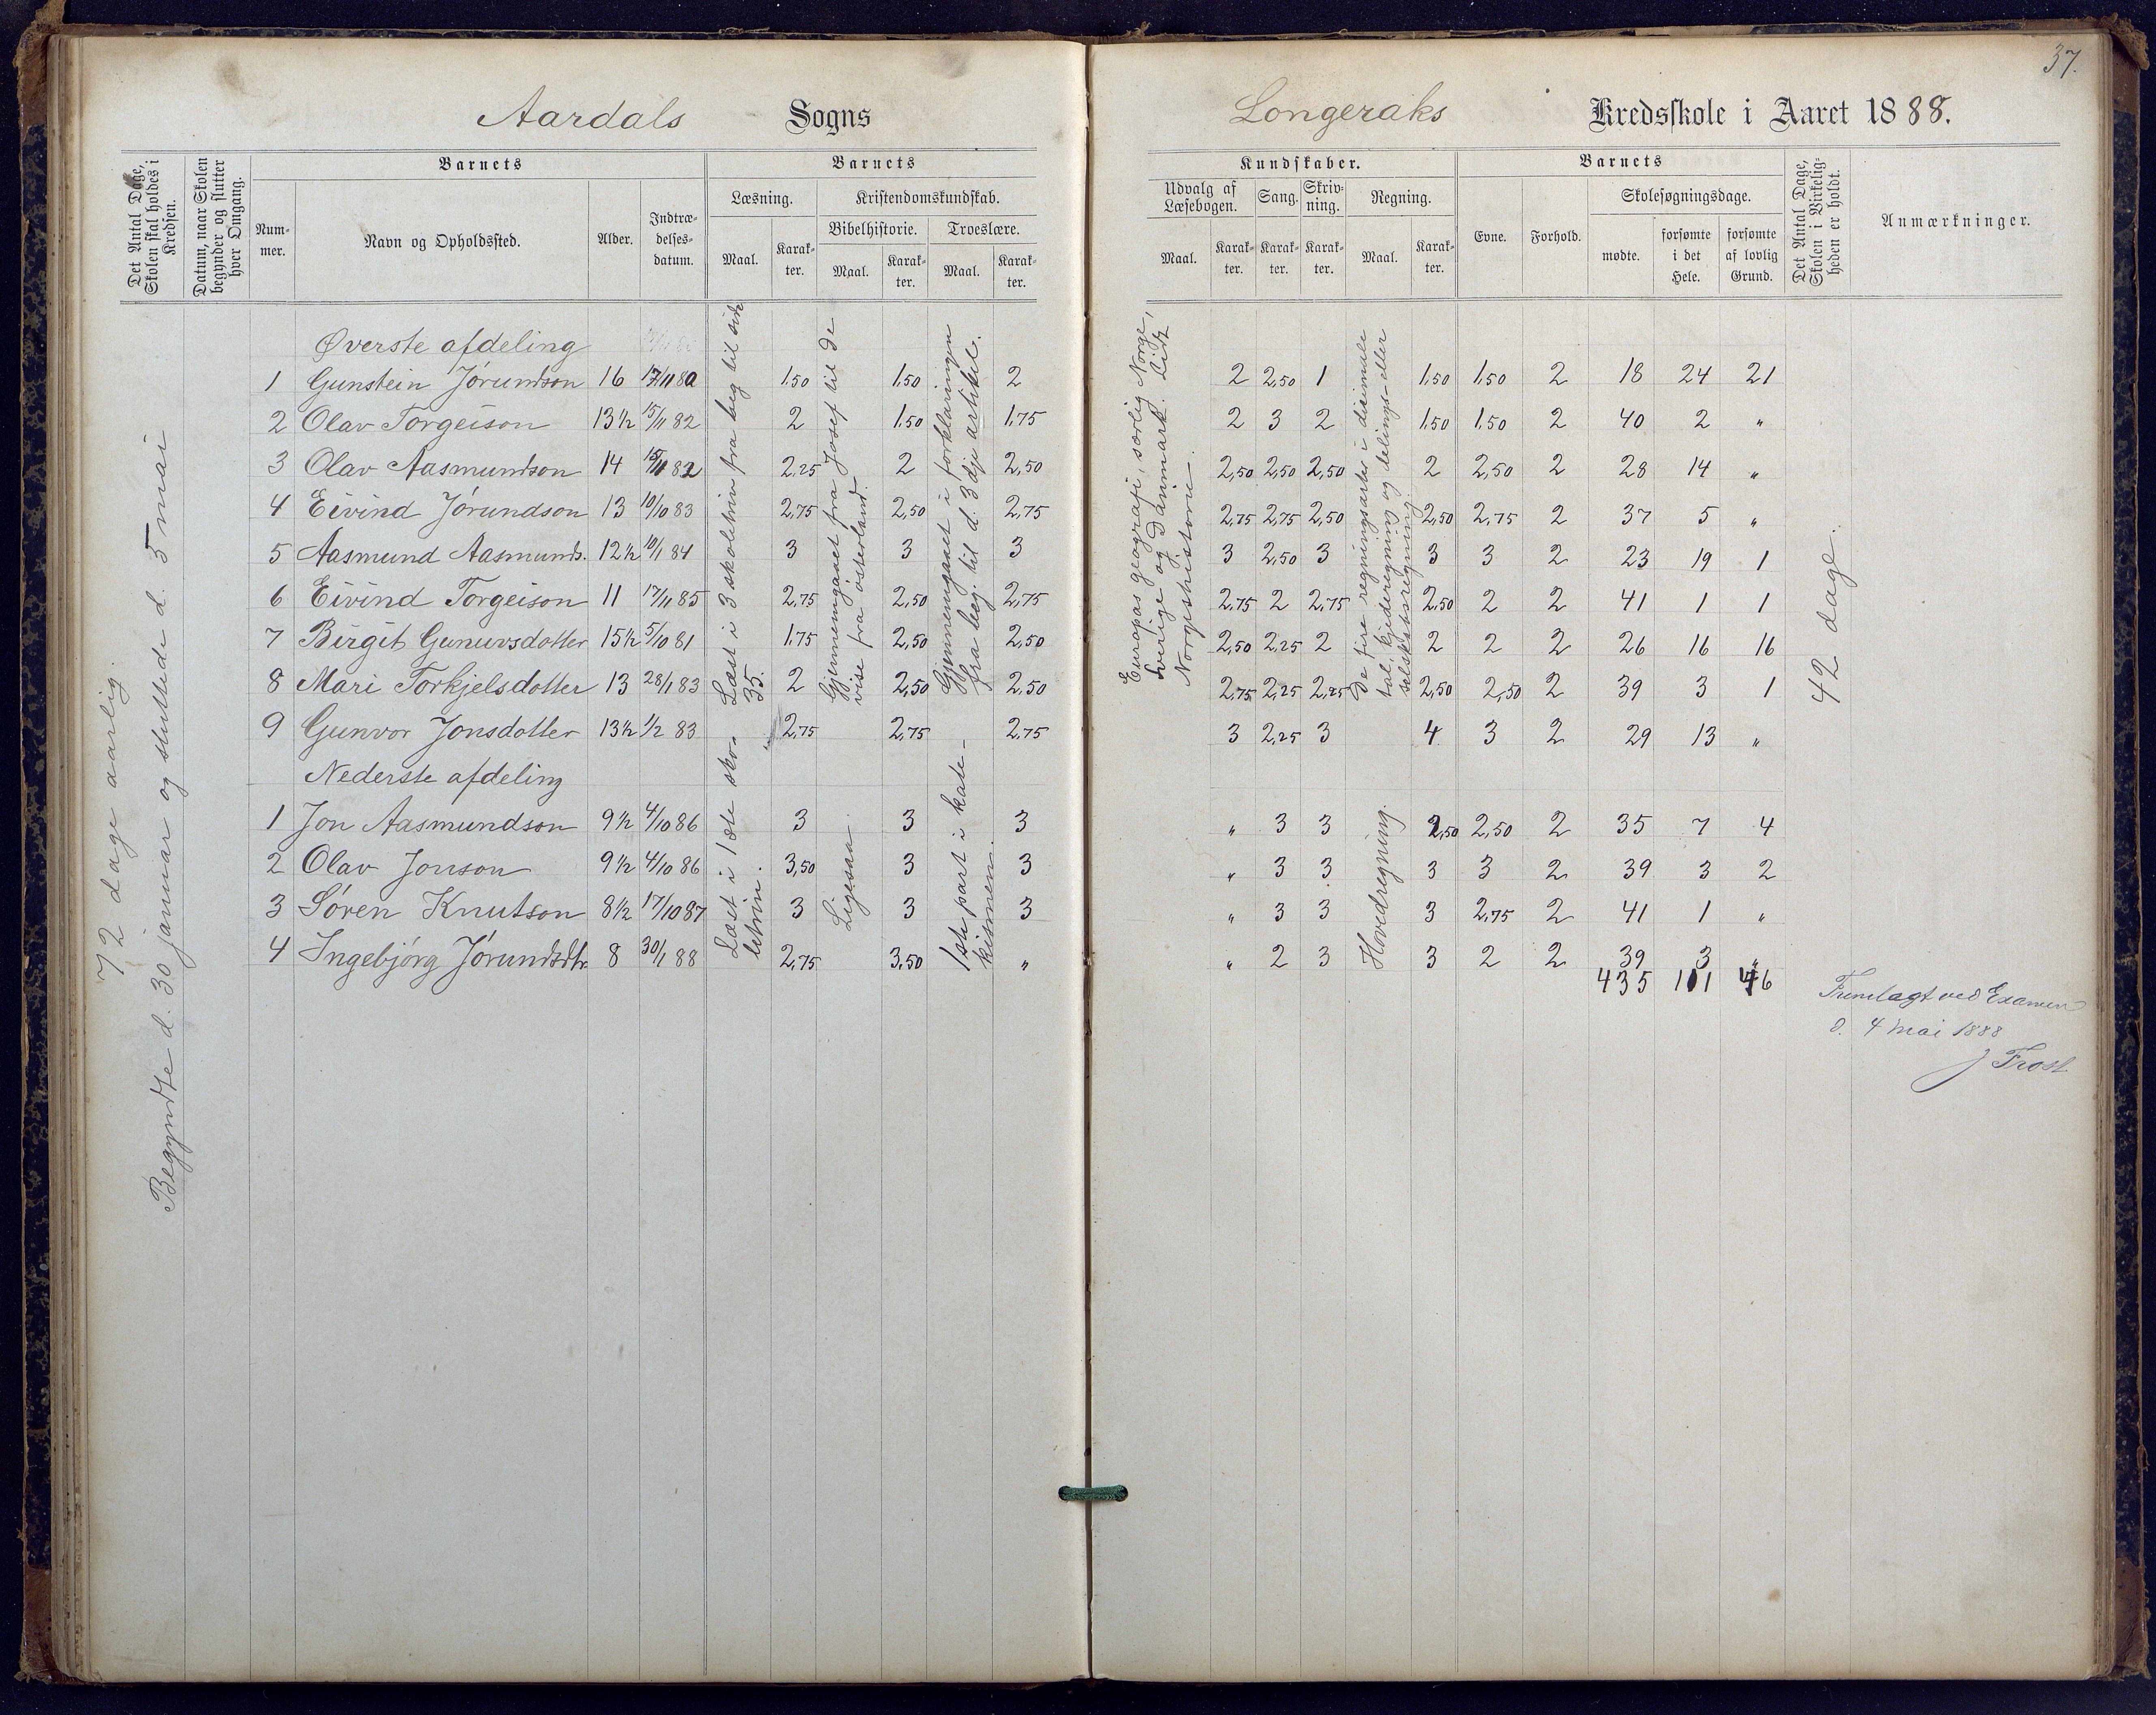 37.
Aardals Sogns
Longeraks Kredsskole i Aaret 1888.
Det Antal Dage, Skolen skal holdes i Kredsen.
Datum, naar Skolen begynder og slutter hver Omgang.
Barnets
Nummer.
Navn og Opholdssted.
Alder.
Indtrædelsesdatum.
Barnets
Læsning.
Maal.
Karakter.
Kristendomskundskab.
Bibelhistorie.
Maal.
Karakter.
Troeslære.
Maal.
Karakter.
Kundskaber.
Udvalg af Læsebogen.
Maal.
Karakter.
Sang.
Karakter.
Skrivning.
Karakter.
Regning.
Maal.
Karakter.
Barnets
Evne.
Forhold.
Skolesøgningsdage.
mødte.
forsømte i det Hele.
forsømte af lovlig Grund.
Det Antal Dage, Skolen i Virkeligheden er holdt.
Anmærkninger.
72 dage aarlig.
Begyndte d. 30 januar og sluttede d. 5 mai
Øverste afdeling
1 Gunstein Jørundson 16 17/11 80 1,50 1,50 2 2 2,50 1 1,50 1,50 2 18 24 21
2 Olav Torgeison 13½ 15/11 82 2 1,50 1,75 2 3 2 1,50 1,50 2 40 2 "
3 Olav Aasmundson 14 15/11 82 2,25 2 2,50 2,50 2,50 2,50 2 2,50 2 28 14 "
4 Eivind Jørundson 13 10/10 83 2,75 2,50 2,75 2,75 2,75 2,50 2,50 2,75 2 37 5 "
5 Aasmund Aasmunds. 12½ 10/1 84 3 3 3 3 2,50 3 3 3 2 23 19 1
6 Eivind Torgeison 11 17/11 85 2,75 2,50 2,75 2,75 2 2,75 2,50 2 2 41 1 1
7 Birgit Gunuvsdotter 15½ 5/10 81 1,75 2,50 2,50 2,50 2,25 2 2 2 2 26 16 16
8 Mari Torkjelsdotter 13 28/1 83 2 2,50 2,50 2,75 2,25 2,25 2,50 2,50 2 39 3 1
9 Gunvor Jonsdotter 13½ 1/2 83 2,75 2,75 2,75 3 2,25 3 4 3 2 29 13 "
Læst i 3 skoletrin fra beg til side
35.
Gjennemgaaet fra Josef til de
vise fra østerland.
Gjennemgaaet i forklaringen
fra beg. til d. 3dje artikel.
Europas geografi, særlig Norge,
Sverige og Danmark. Lidt
Norgeshistorie.
De fire regningsarter i decimale
tal, kjederegning og delings- eller
selskabsregning.
42 dage.
Nederste afdeling
1 Jon Aasmundson 9½ 4/10 86 3 3 3 " 3 3 2,50 2,50 2 35 7 4
2 Olav Jonson 9½ 4/10 86 3,50 3 3 " 3 3 3 3 2 39 3 2
3 Søren Knutson 8½ 17/10 87 3 3 3 " 3 3 3 2,75 2 41 1 "
4 Ingebjørg Jørundsdtr. 8 30/1 88 2,75 3,50 " " 2 3 3 2 2 39 3 "
435 111 46
Læst i 1ste sko-
letrin.
Ligesaa.
1ste part i kate-
kismen.
Hovedregning.
Fremlagt ved Examen
d. 4 mai 1888
J Frost